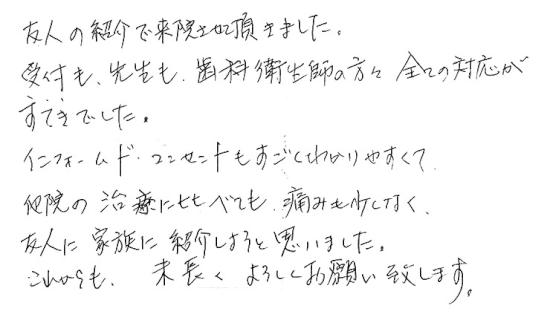 友人の紹介で来院させて頂きました。
受付も、先生も、歯科衛生師の方々 全ての対応が
すてきでした。
インフォームド・コンセントもすごくわかりやすくて
他院の治療に比べても、痛みも少しなく、
友人に家族に紹介しようと思いました。
これからも、末長く よろしくお願い致します。